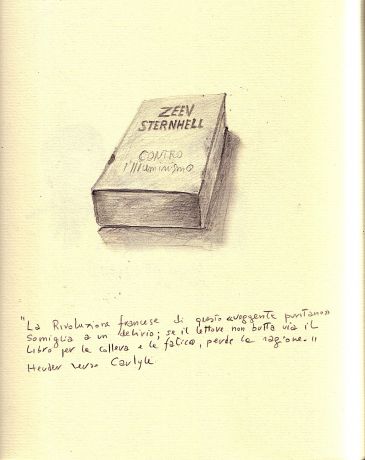 ZEEV
STERNHELL
CONTRO
l'Illuminismo
"La Rivoluzione francese di questo avoggente puritano
somiglia a un delirio; se il lettore non butta via il
libro per la collera e la fatica, perde la ragione."
Herder verso Carlyle